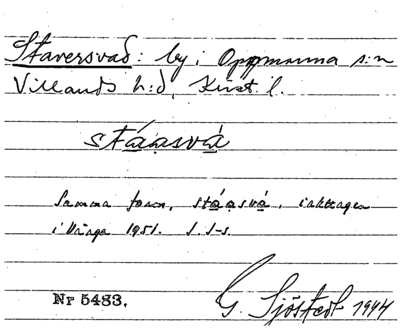 Staversvad: by i Oppmanna s:n
Villands h:d, Krist l.
ståasvá
Samma form, ståasvá, iakttagen
i Vånga 1951. I. I-s.
Nr 5483. G. Sjöstedt 1944